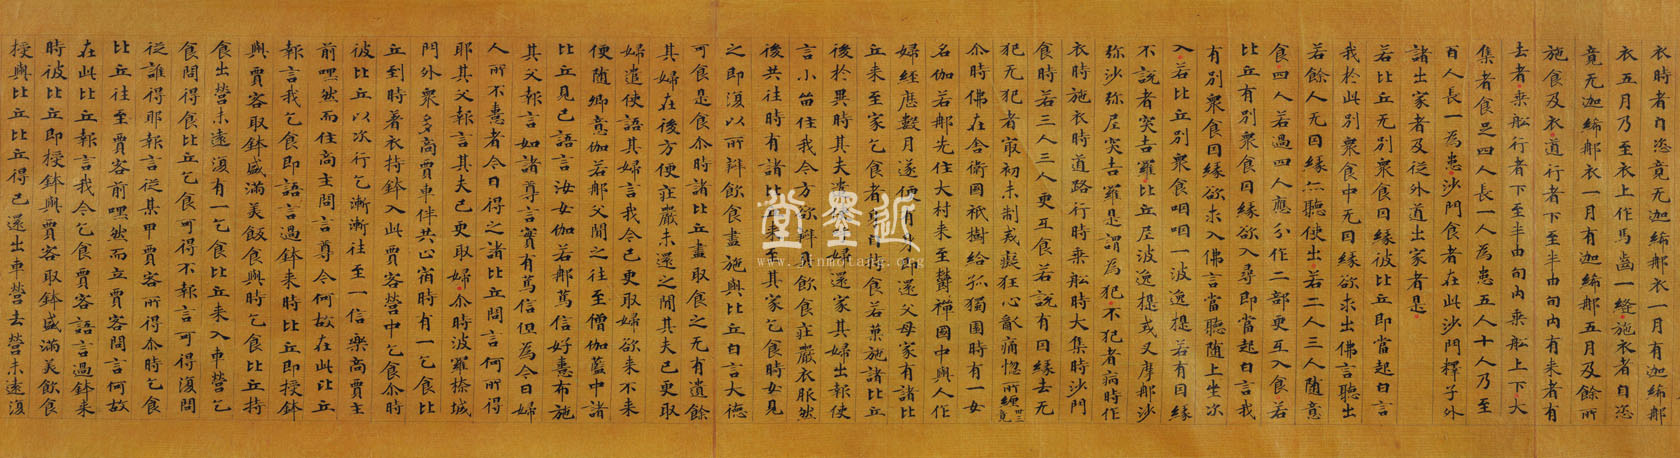 衣時者自恣竟无迦絺那衣一月有迦絺那
衣五月乃至衣上作馬齒一縫施衣者自恣
竟无迦絺那衣一月有迦絺那五月及餘所
施食及衣道行者下至半由旬內有来者有
去者乘舩行者下至半由旬內乘舩上下大
集者食足四人長一人為患五人十人乃至
百人長一為患沙門食者在此沙門釋子外
諸出家者及從外道出家者是
若比丘无別衆食因緣彼比丘即當起白言
我於此別衆食中无因緣欲求出佛言聽出
若餘人无因緣亦聽使出若二人三人随意
食四人若過四人應分作二部更互入食若
比丘有別衆食因緣欲入尋即當起白言我
有別衆食因緣欲求入佛言當聽随上坐次
入若比丘別衆食咽咽一波逸提若有因緣
不說者突吉羅比丘尼波逸提式叉摩那沙
弥沙弥尼突吉羅是謂為犯不犯者病時作
衣時施衣時道路行時乘舩時大集時沙門
食時若三人三人更互食若說有因緣去无
犯无犯者最初未制戒癡狂心亂痛惱所纏
尒時佛在舍衛国祇樹給孤獨園時有一女
名伽若那先住大村来至欝禪國中與人作
婦經歷數月遂便有身即還父母家有諸比
丘来至家乞食者自持食若菓施諸比丘
後於異時其夫遣使呼婦還家其婦出報使
言小苗住我今方欲辦具飲食莊嚴衣服然
後共往時有諸比丘至其家乞食時女見
之即復以所辦飲食盡施與比丘白言大德
可食是食尒時諸比丘盡取食之无有遺餘
其婦在後方便莊嚴未還之間其夫已更取
婦遣使語其婦言我今已更取婦欲来不来
便随卿意伽若那父聞之往至僧伽藍中諸
比丘見已語言汝女伽若那篤信好惠布施
其父報言如諸尊言實有篤信但為今日婦
人所不憙者今日得之諸比丘問言何所得
耶其父報言其夫已更取婦尒時波羅㮈城
門外衆多商賈車伴共止宿時有一乞食比
丘到時著衣持鉢入此賈客營中乞食尒時
彼比丘以次行乞漸漸往至一信樂商賈主
前嘿然而住商主問言尊今何故在此比丘
報言我乞食即語言過鉢来時比丘即授鉢
與賈客取鉢盛滿美飯食與時乞食比丘持
食出營未遠復有一乞食比丘来入車營乞
食問得食比丘乞食可得不報言可得復問
從誰得耶報言從某甲賈客所得尒時乞食
比丘往至賈客前嘿然而立賈客問言何故
在此比丘報言我今乞食賈客語言過鉢来
時彼比丘即授鉢與賈客取鉢盛滿美飲食
授與比丘比丘得已還出車營去營未遠復
近墨堂
www.jinmotang.org